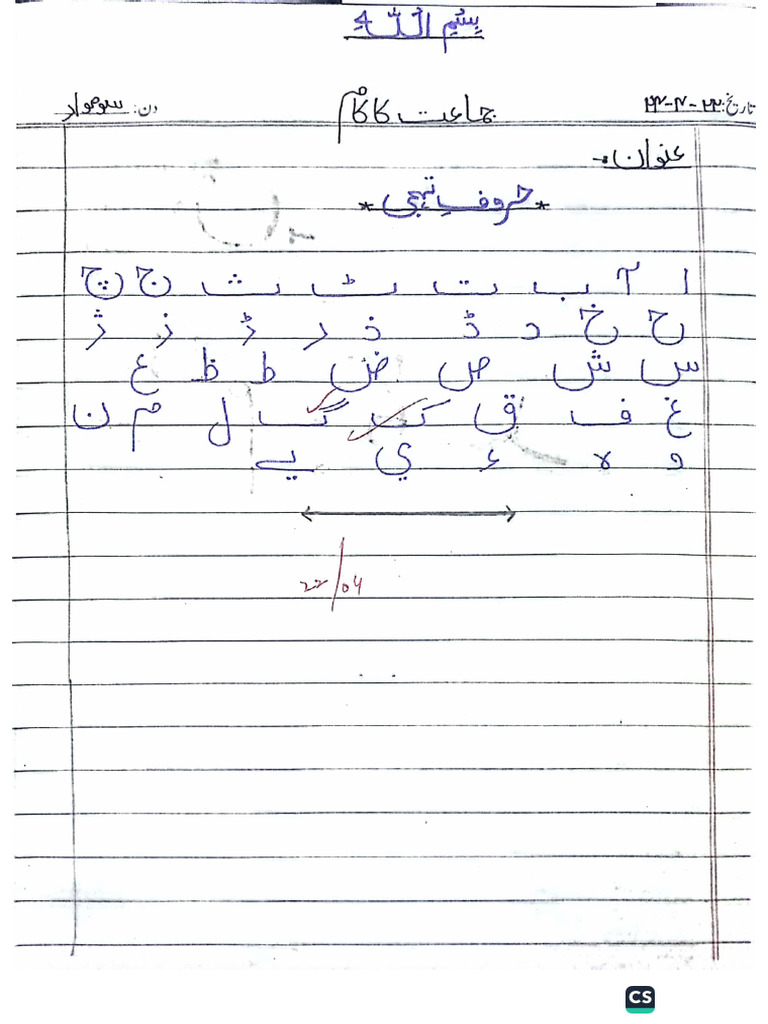 بسم اللہ
تاریخ: ۲۲-۴-۲۴ جماعت کا کام دن: سوموار
عنوان:-
* حروفِ تہجی *
ا آ ب ت ٹ ث ج چ
ح خ د ڈ ذ ر ڑ ز ژ
س ش ص ض ط ظ ع
غ ف ق ک گ ل م ن
و ہ ء ي ے
22/04
CS